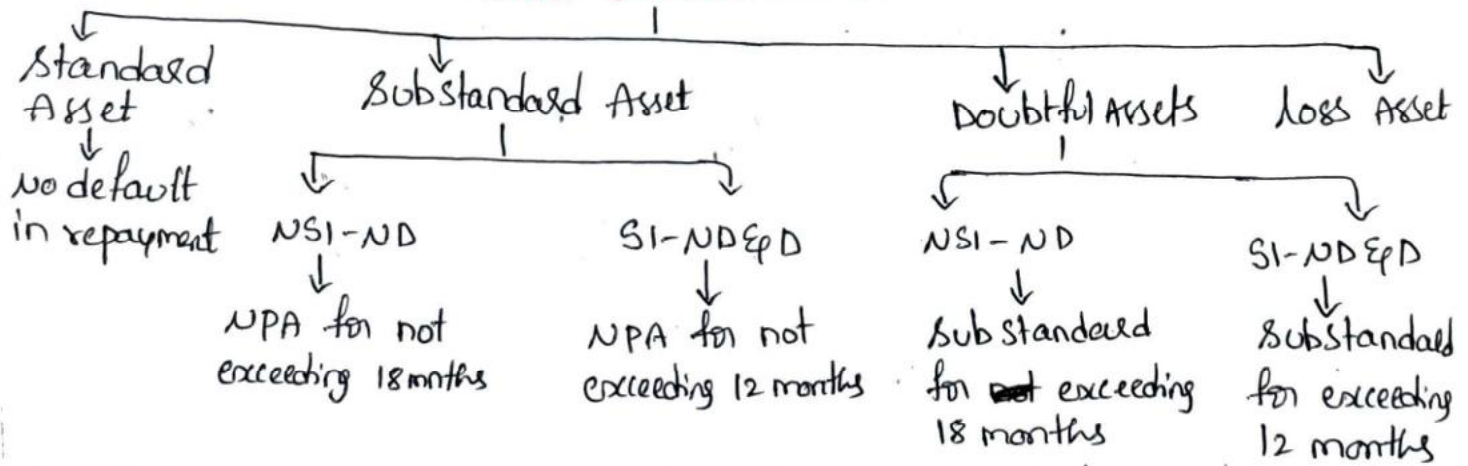 Standard
Asset
No default
in repayment
Substandard Asset
NSI-ND
NPA for not
exceeding 18 mnths
SI-ND & D
NPA for not
exceeding 12 months
Doubtful Assets
NSI-ND
Substandard
for exceeding
18 months
SI-ND & D
Substandard
for exceeding
12 months
Loss Asset